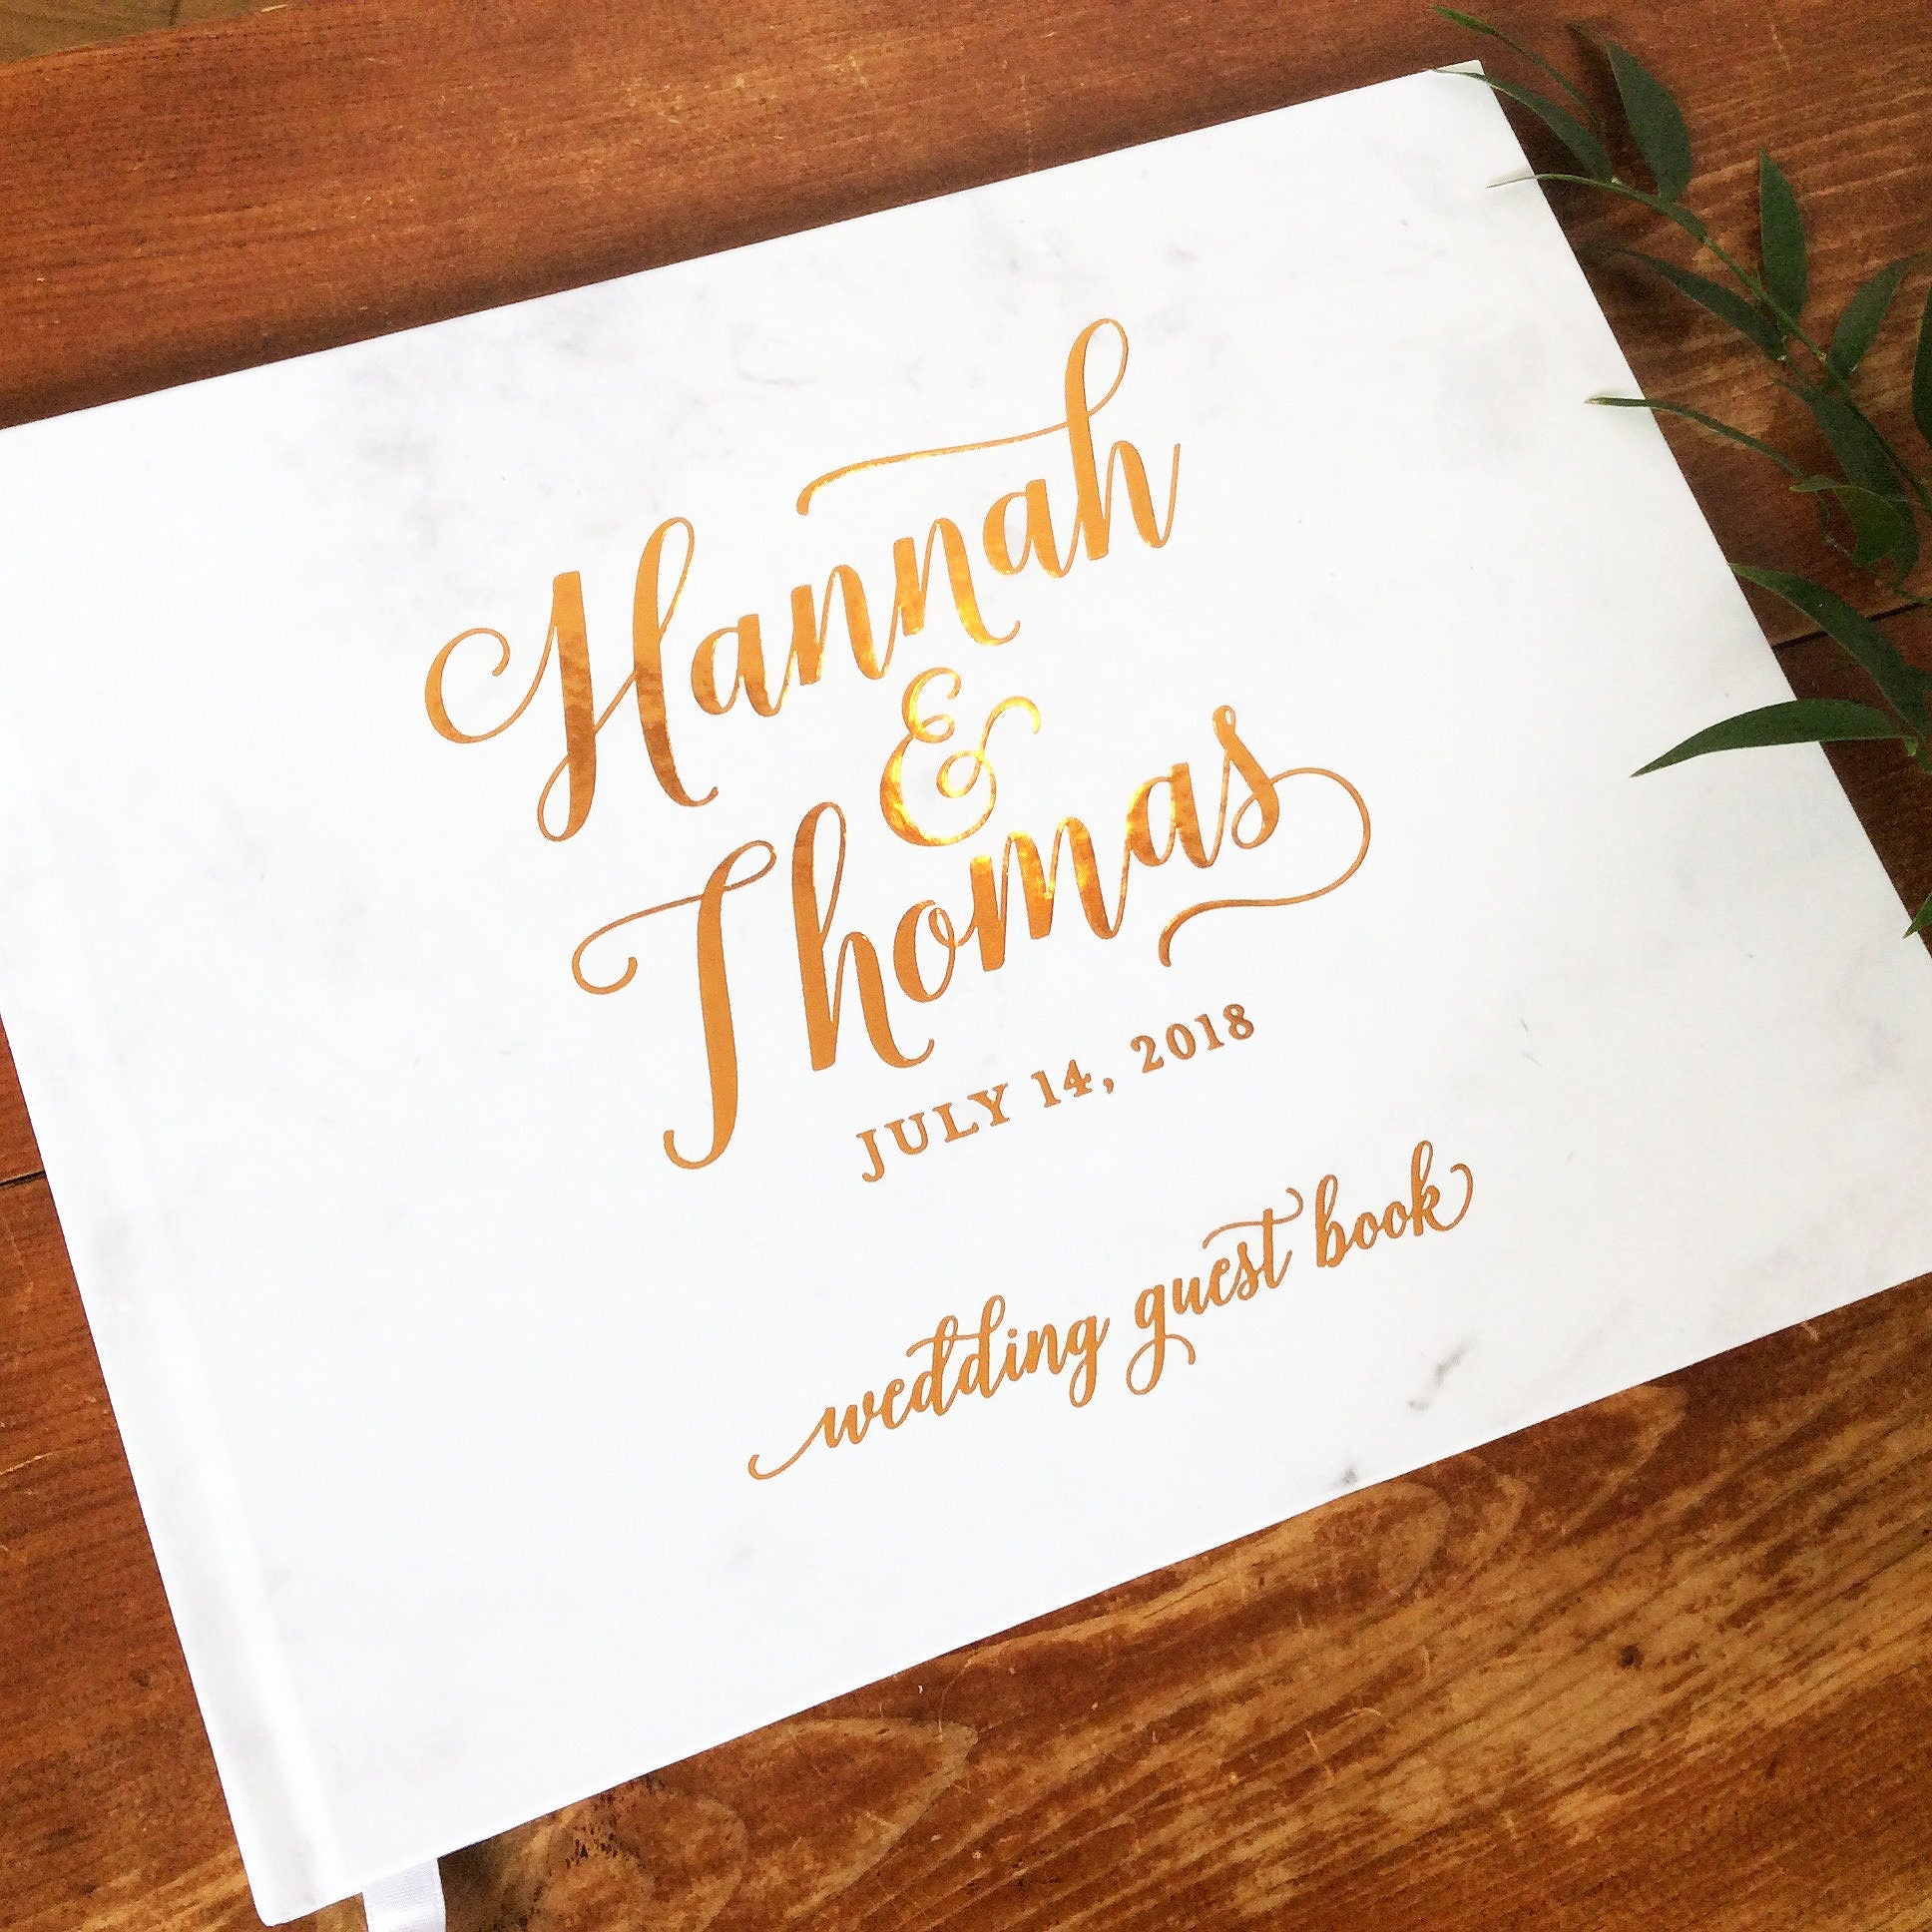 Hannah
&
Thomas
JULY 14, 2018
wedding guest book